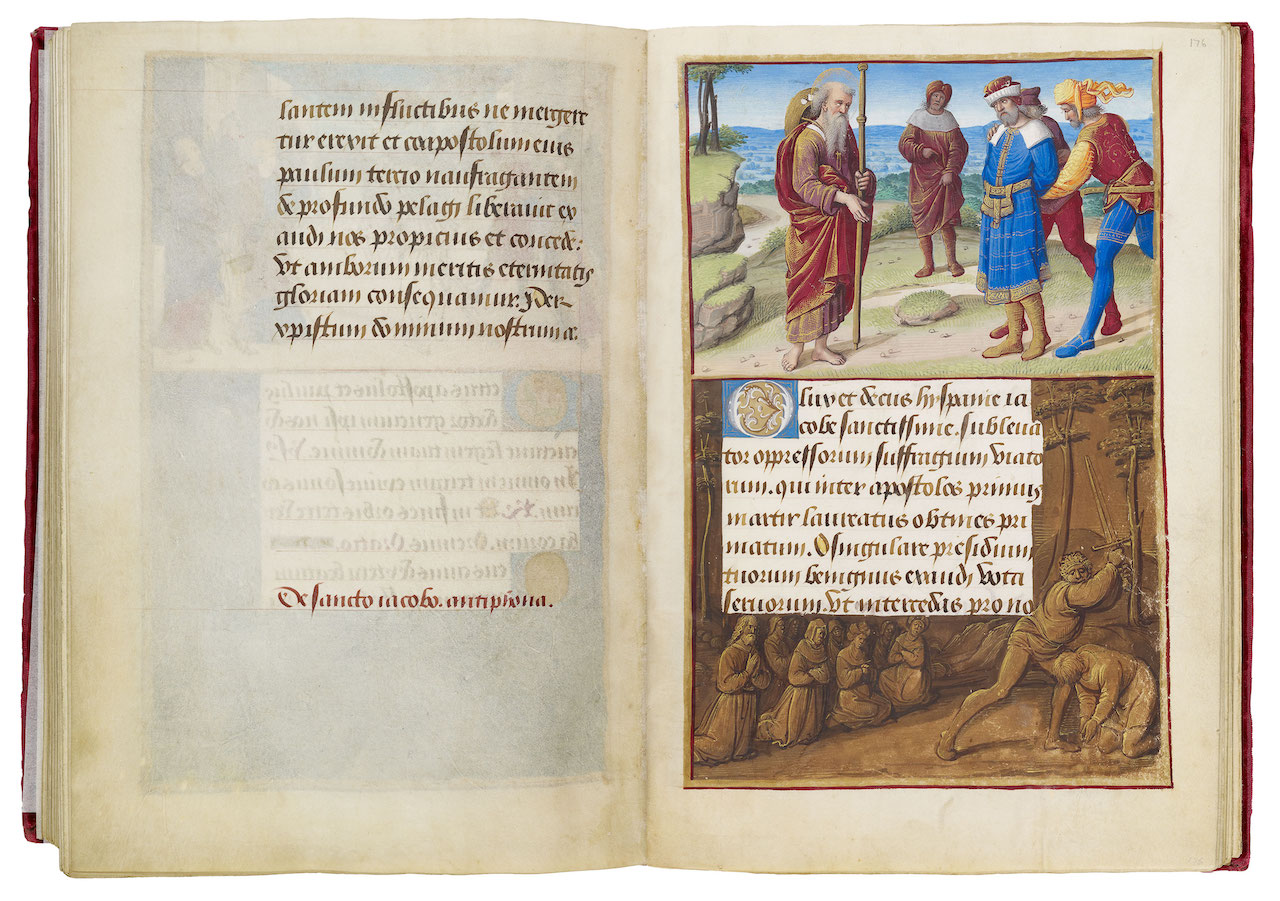 lantem in fluctibus ne merger
tur erexit et coapostolum eius
paulum tercio naufragantem
de profundo pelagi liberauit ex
audi nos propicius et concede:
Vt amborum meritis eternitatis
gloriam consequamur. Per
xpistum dominum nostrum a.
De sancto iacobo. antiphona.
176
O lux et decus hyspanie ia
cobe sanctissime. subleua
tor oppressorum suffragium viato
rum. qui inter apostolos primus
martir laureatus obtines pri
matum. O singulare presidium
tuorum benignus exaudi vota
seruorum. Vt intercedas pro no